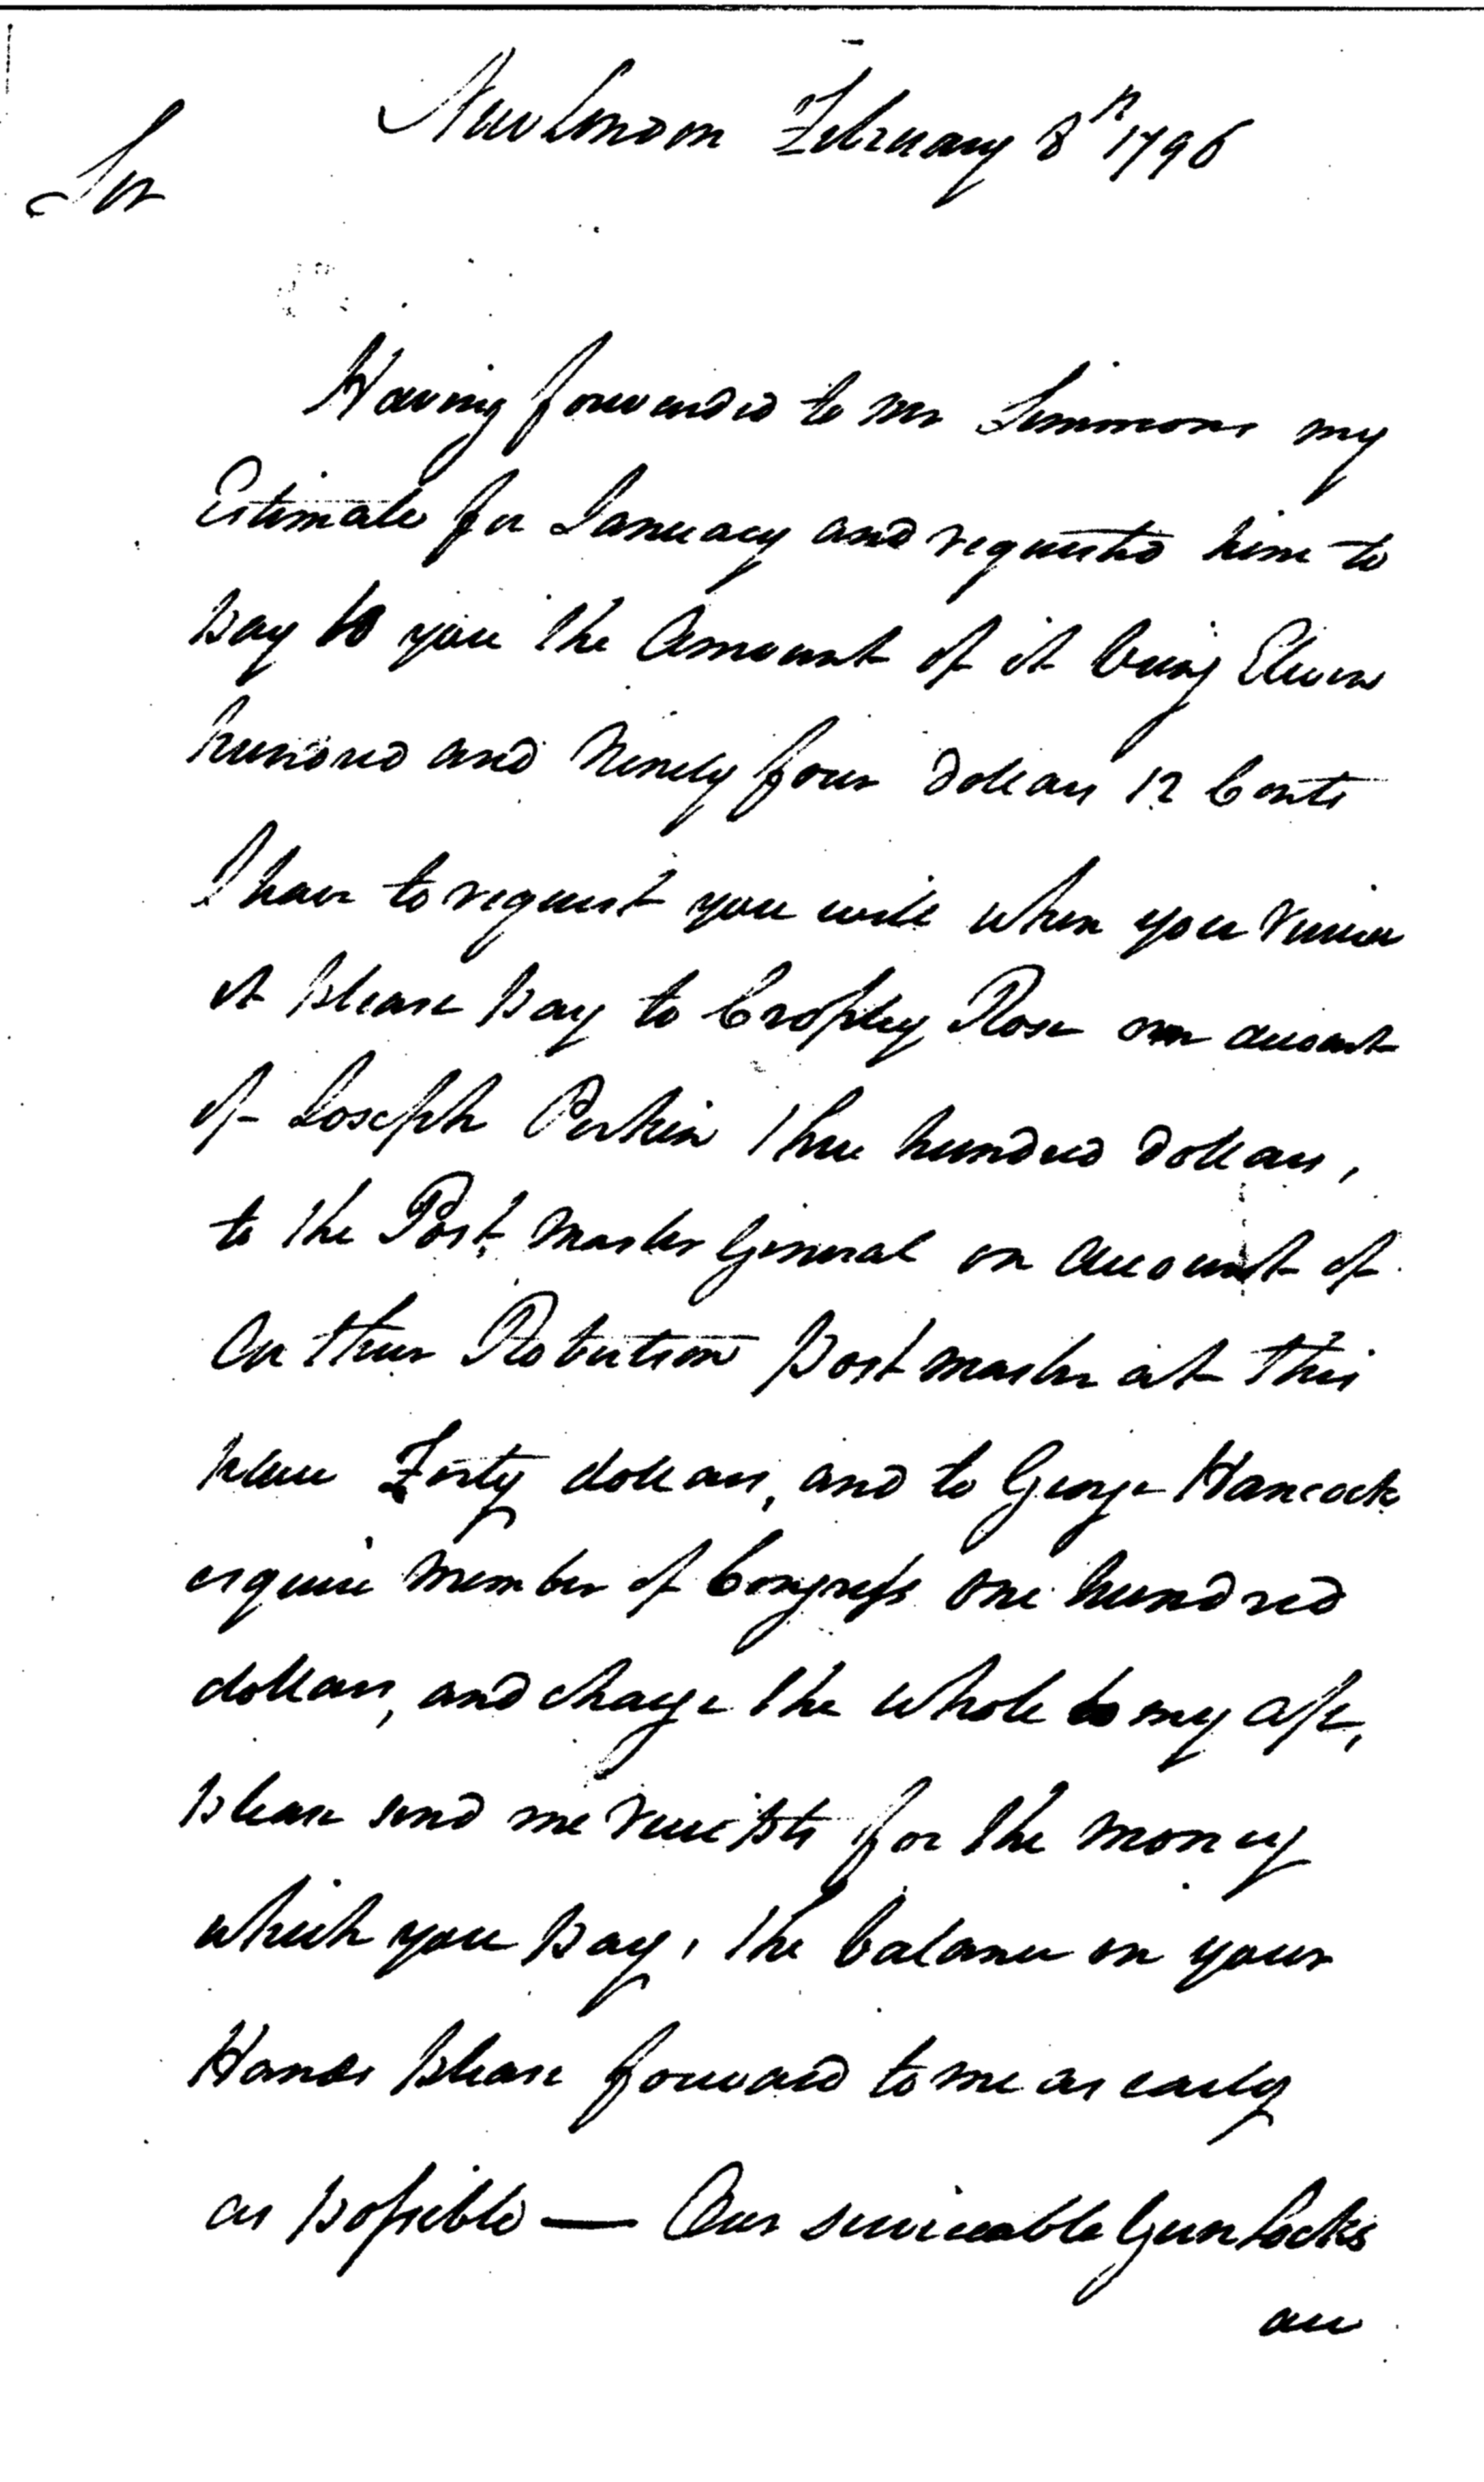 New London February 8th 1796
Sir
Having forwarded to Mr Simmons my
Estimate for January and requested him to
pay to you the Amount of it being Eleven
hundred and Ninety four dollars 12 Cents
I have to request you will when you receive
it please pay to Cropley Rose on account
of Joseph Perkin three hundred dollars,
to the Post Master General on account of
Arthur Robertson post master at this
place Forty dollars, and to George Hancock
esquire Member of Congress one hundred
dollars, and charge the whole to my a/c,
please send me receipts for the money
which you pay, the balance in your
Hands please forward to me as early
as possible — Our serviceable Gun locks
are